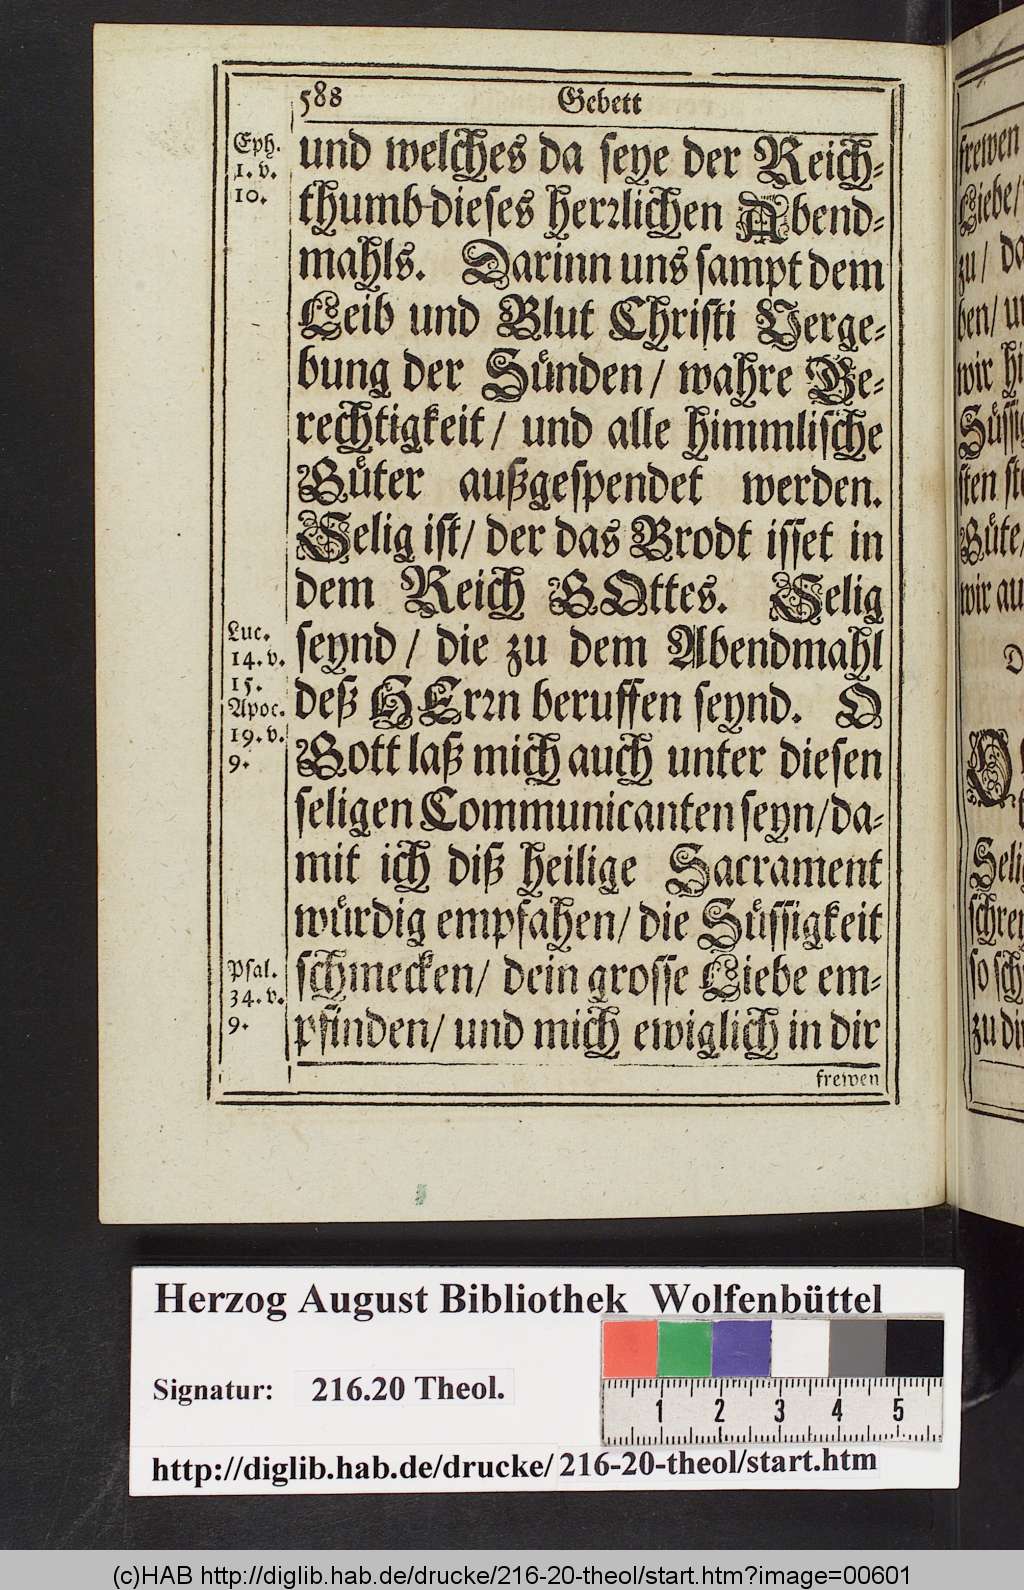 588 Gebett
Eph.
1. v.
10.
und welches da seye der Reich-
thumb dieses herrlichen Abend-
mahls. Darinn uns sampt dem
Leib und Blut Christi Verge-
bung der Sünden / wahre Ge-
rechtigkeit / und alle himmlische
Güter außgespendet werden.
Selig ist / der das Brodt isset in
dem Reich GOttes. Selig
seynd / die zu dem Abendmahl
deß HErrn beruffen seynd. O
Gott laß mich auch unter diesen
seligen Communicanten seyn / da-
mit ich diß heilige Sacrament
würdig empfahen / die Süssigkeit
schmecken / dein grosse Liebe em-
pfinden / und mich ewiglich in dir
frewen
Luc.
14. v.
15.
Apoc.
19. v.
9.
Psal.
34. v.
9.
frewen
Liebe /
zu / da
ben / un
wir hi
Süssig
sten st
Güte /
wir au
D
Selig
schrey
so sch
zu dir
Herzog August Bibliothek Wolfenbüttel
Signatur: 216.20 Theol.
1 2 3 4 5
http://diglib.hab.de/drucke/216-20-theol/start.htm
(c)HAB http://diglib.hab.de/drucke/216-20-theol/start.htm?image=00601